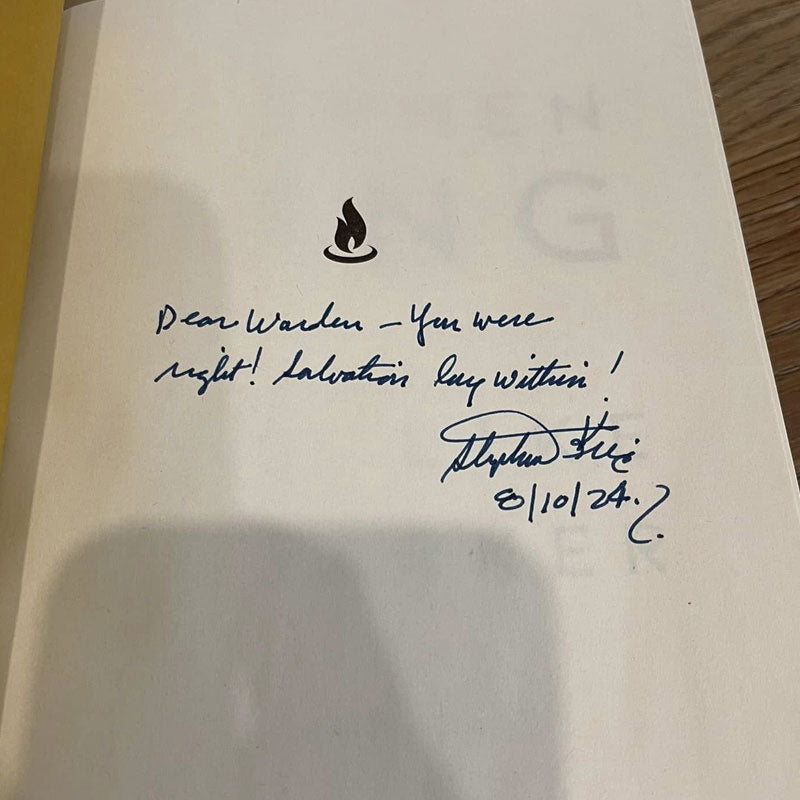 Dear Warden – You were
right! Salvation lay within!
Stephen King
8/10/24.